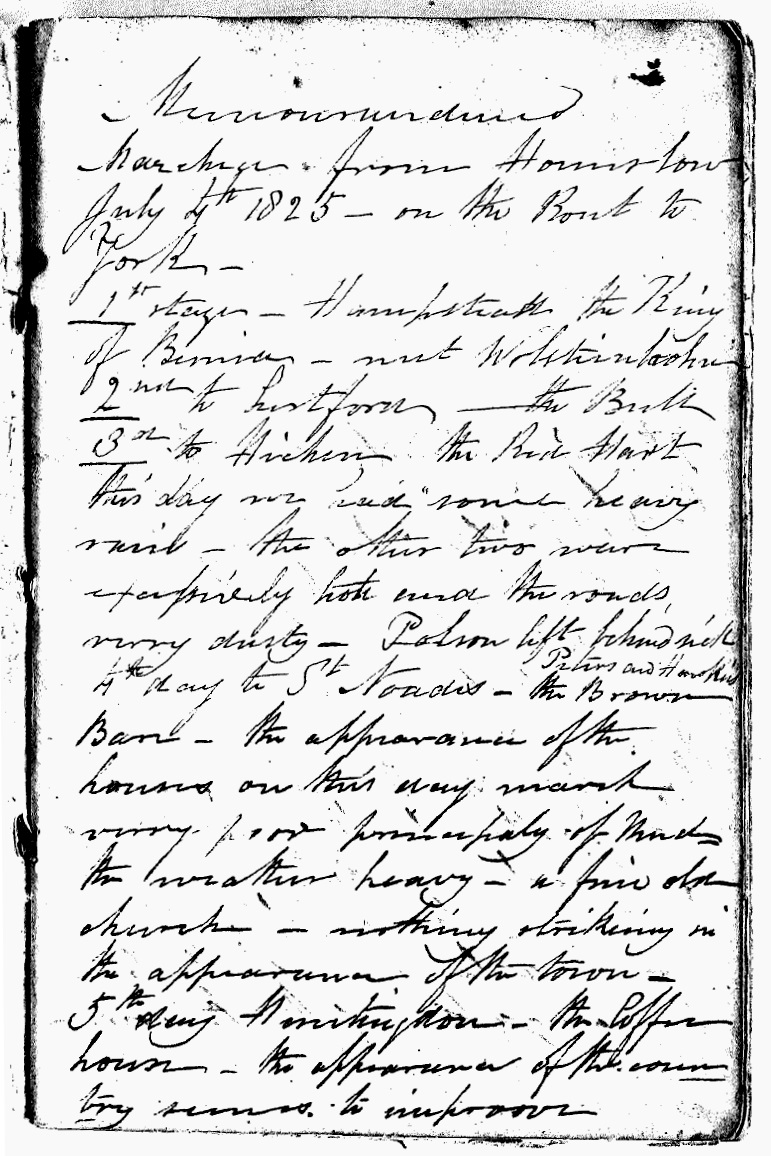 Memourandum
Marchen from Hounslow
July 4th 1825 – on the Rout to
York –
1st stage – Hampstead the King
of Bemia – met
2nd to hertford – the Bull
3rd to Hichen the Red Hart
this day we had some heavy
rain – the other two ware
exspsively hott and the roads
verry dusty – Polson left behind sick
Peters and Hawkins
4th day to St Noades – the Brown
Bare – the appearance of the
houses on this day march
verry poor principaly of Mud –
the weather heavy – a fine old
church – nothing striking in
the appearance of the town –
5th day Huntingdon – the Coffee
house – the appearance of the coun
try seems to improove